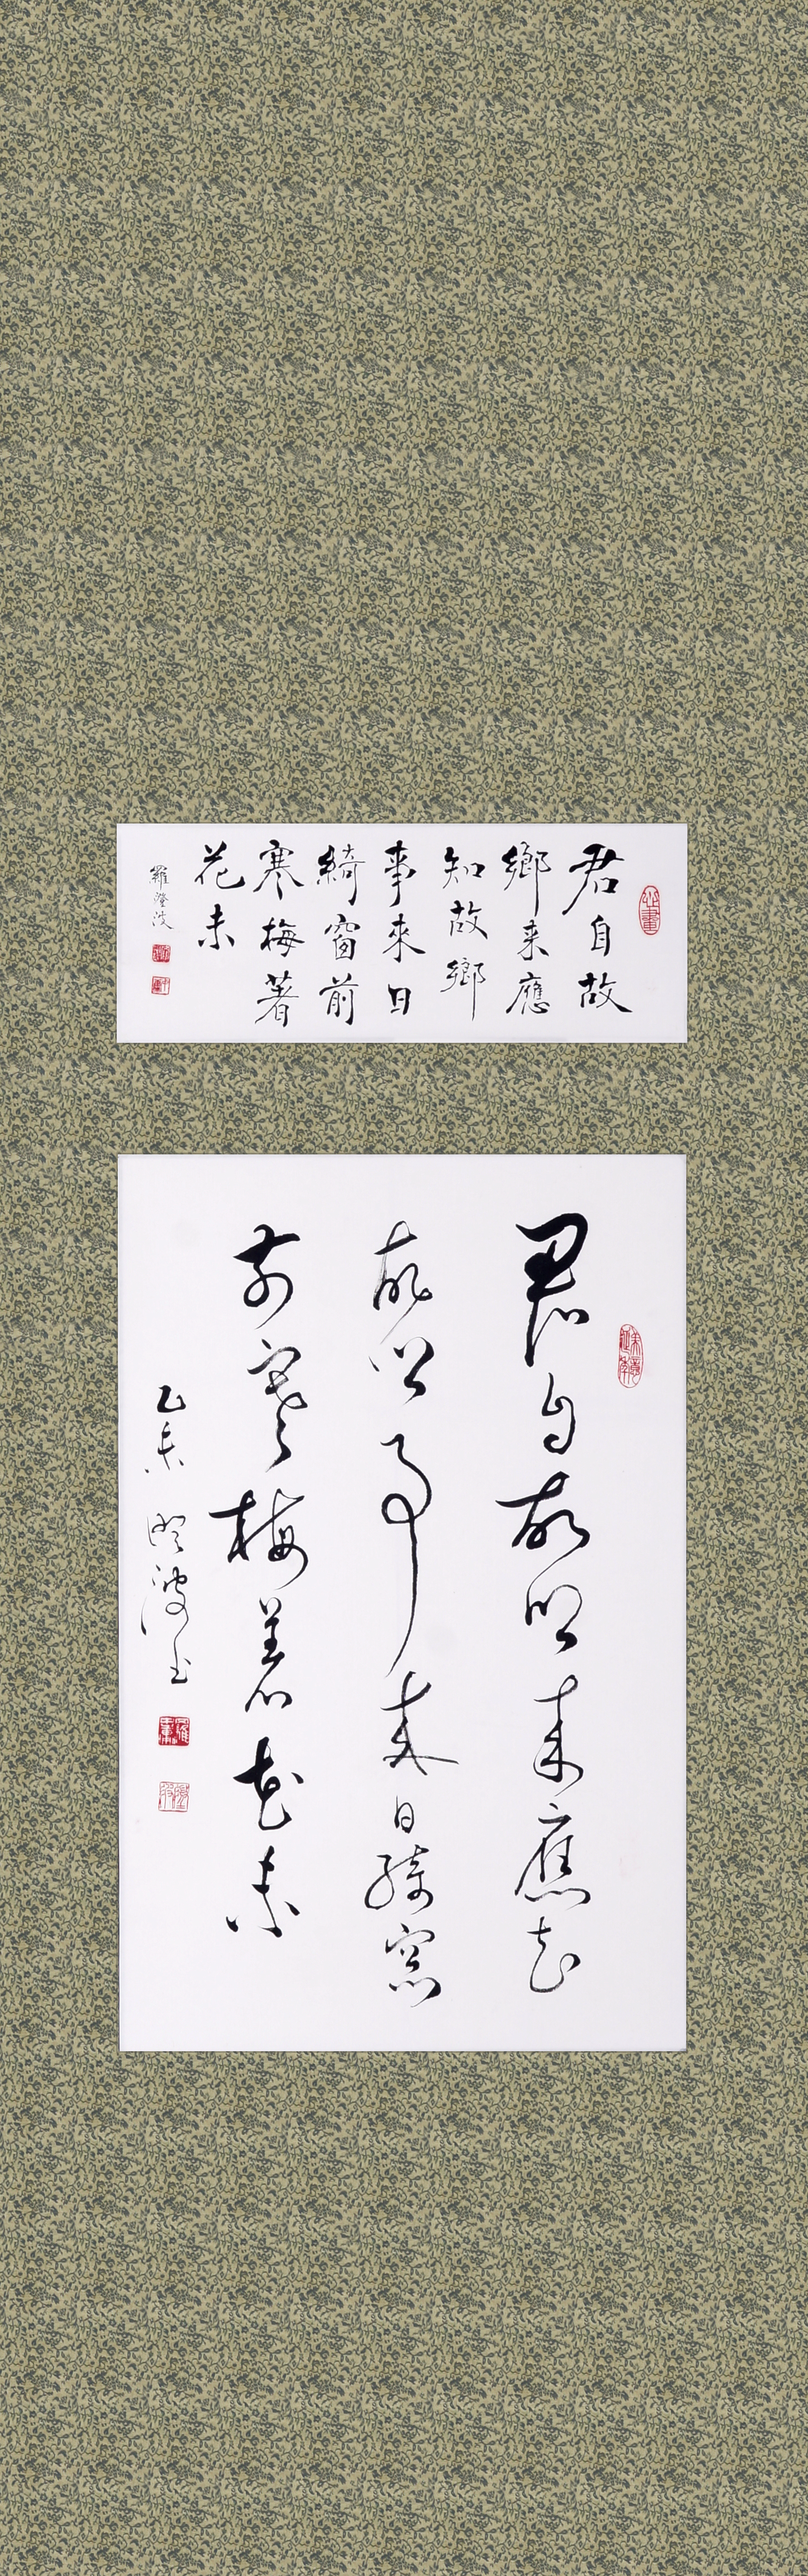 君自故
鄉来應
知故鄉
事來日
綺窗前
寒梅著
花未
羅澄波
君自故鄉来應知
故鄉事来日綺窗
前寒梅著花未
乙未 澄波書